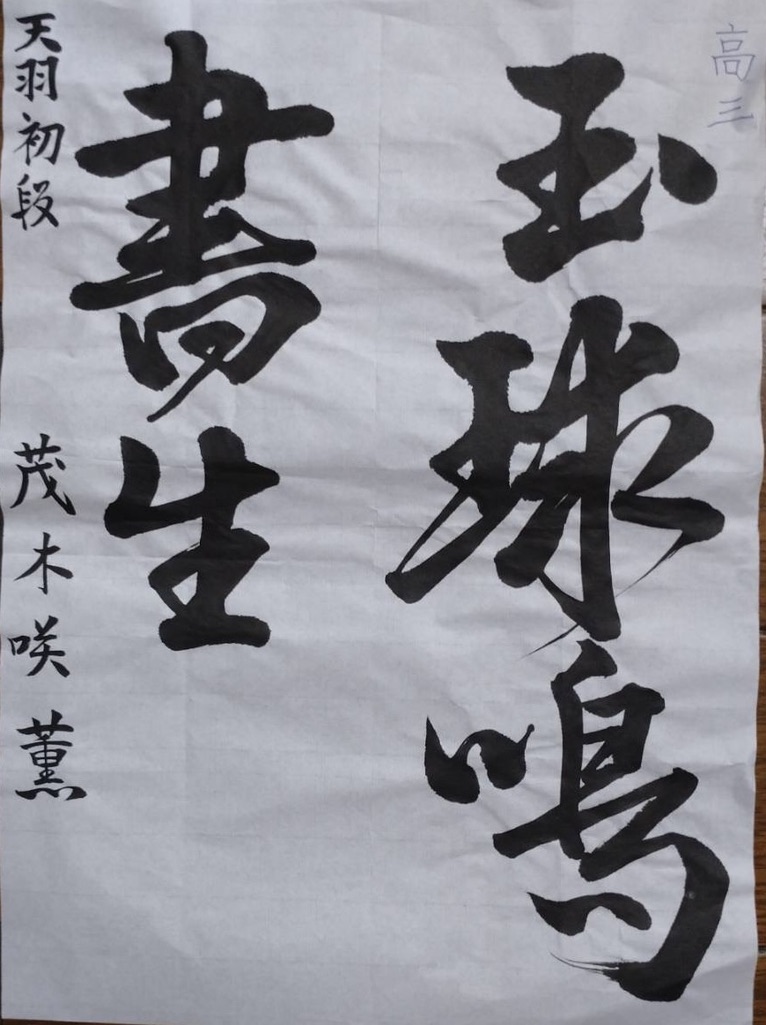 高三
玉球鳴
書生
天羽初段 茂木咲薫